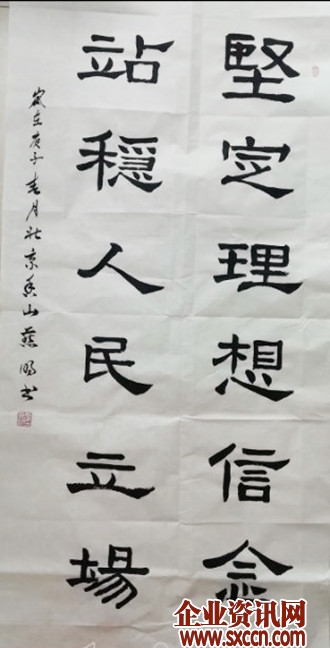 堅定理想信念
站穩人民立場
歲在庚子春月北京香山燕鳴书
企业资讯网
www.sxccn.com